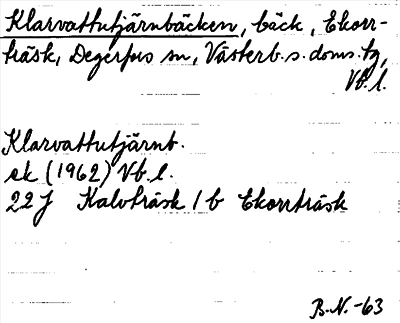 Klarvattutjärnbäcken, bäck, Ekorr-
träsk, Degerfors sn, Västerb. s. doms. tg,
Vb. l.
Klarvattutjärnb.
ek (1962) Vb. l.
22 J Kalvträsk / b Ekorrträsk
B.N. -63